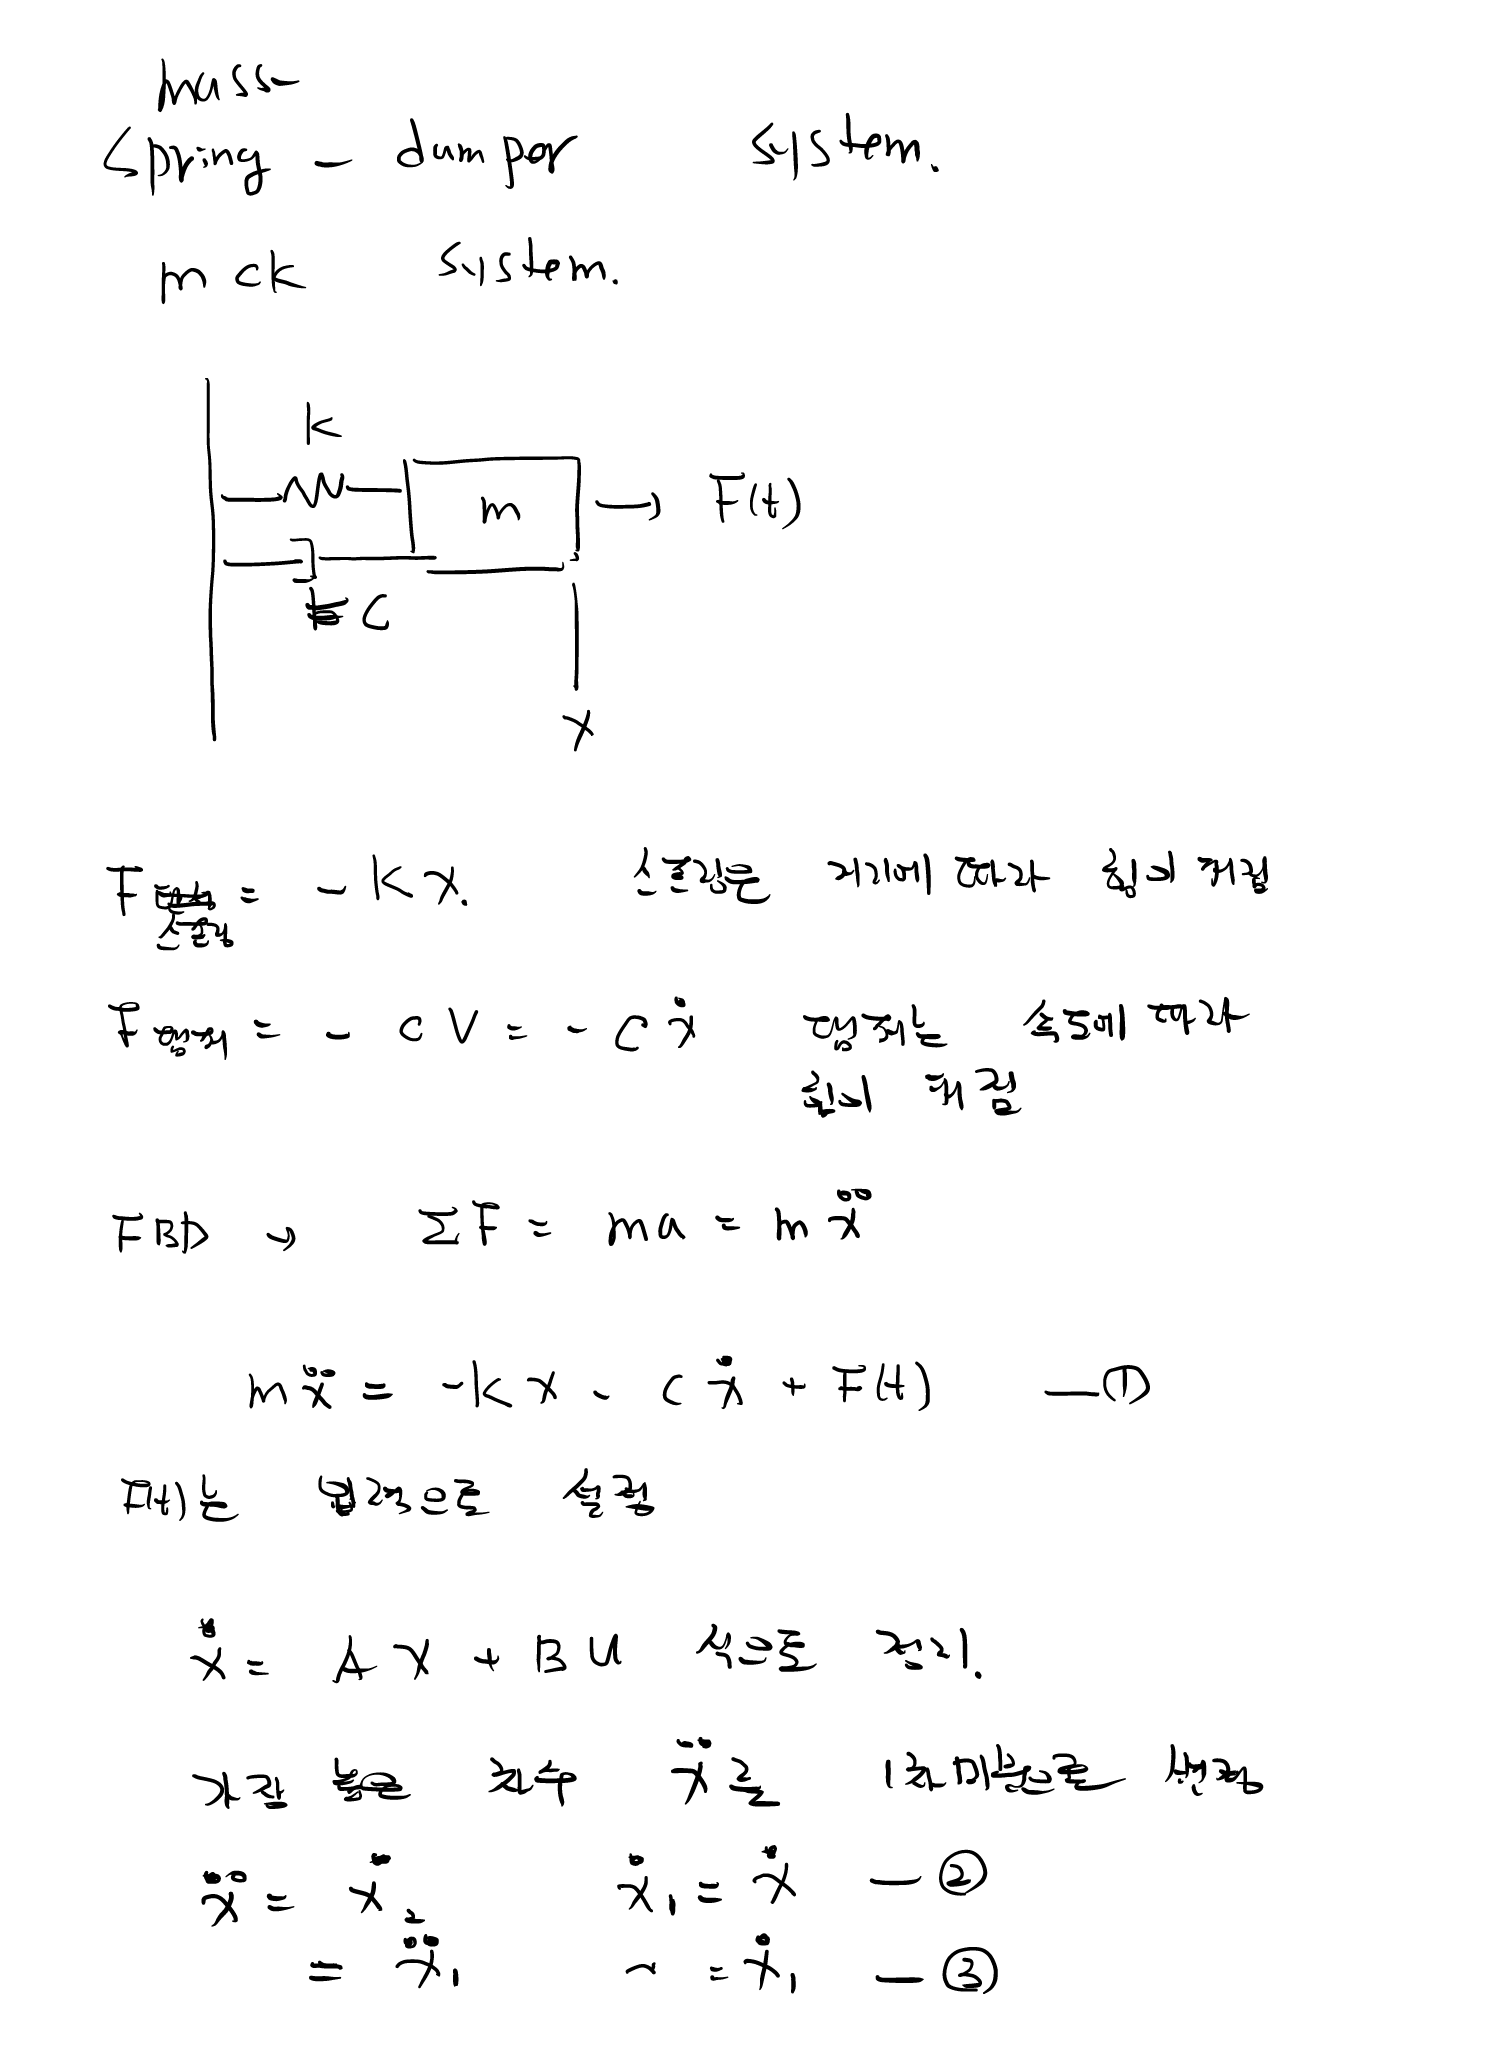 mass
spring - dumper system.
mck system.
k
m → F(t)
C
x
F스프링 = - kx. 스프링은 거리에 따라 힘이 커짐
F댐퍼 = - cv = - cẋ 댐퍼는 속도에 따라
힘이 커짐
FBD → ΣF = ma = mẍ
mẍ = -kx - cẋ + F(t) — ①
F(t)는 입력으로 설정
ẋ = Ax + Bu 식으로 정리.
가장 높은 차수 ẍ를 1차미분으로 변경
ẍ = ẋ₂ ẋ₁ = ẋ — ②
= ẍ₁ ~ = ẋ₁ — ③